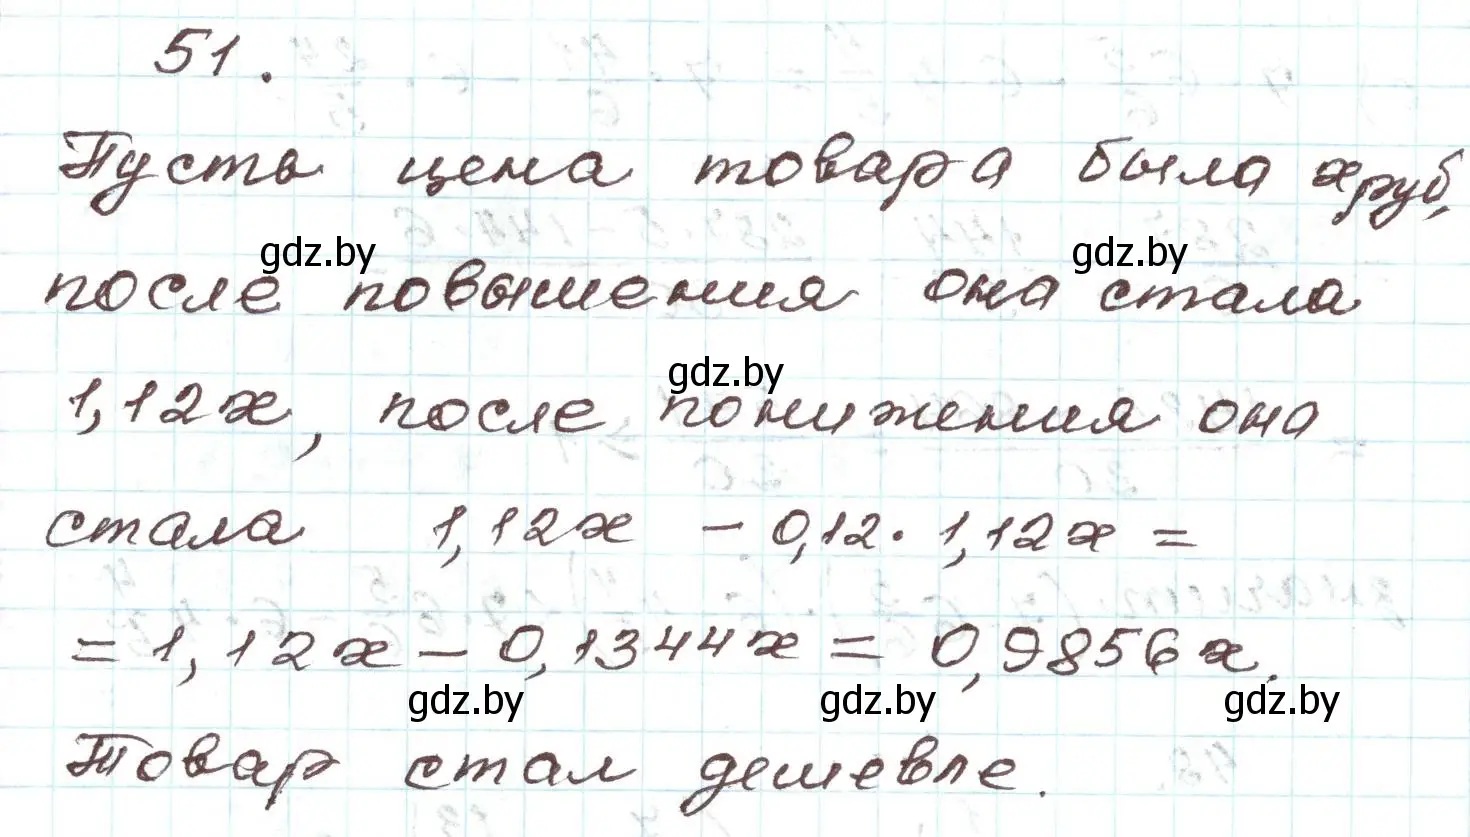 51.
Пусть цена товара была x руб,
gdz.by gdz.by
после повышения она стала
gdz.by
1,12x, после понижения она
стала 1,12x - 0,12 · 1,12x =
= 1,12x - 0,1344x = 0,9856x.
gdz.by gdz.by gdz.by
Товар стал дешевле.